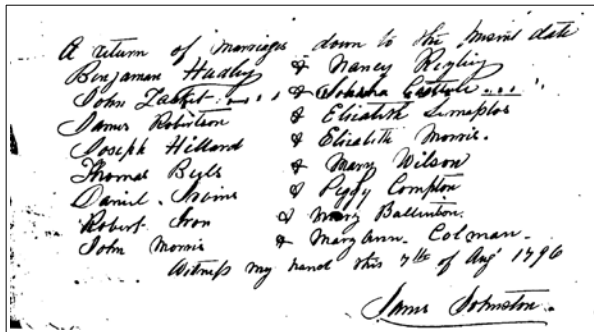 A return of Marriages down to this present date
Benjaman Hadley & Nancy Rigley
John & 
James Robertson & Elizabeth
Joseph Hilland & Elizabeth Morris.
Thomas & Mary Wilson
Daniel Irvine & Peggy Compton
Robert Iron & Mary Ballinton.
John Morris & Mary Ann. Colman.
Witness my hand this 7th of Augt 1796
James Johnston.